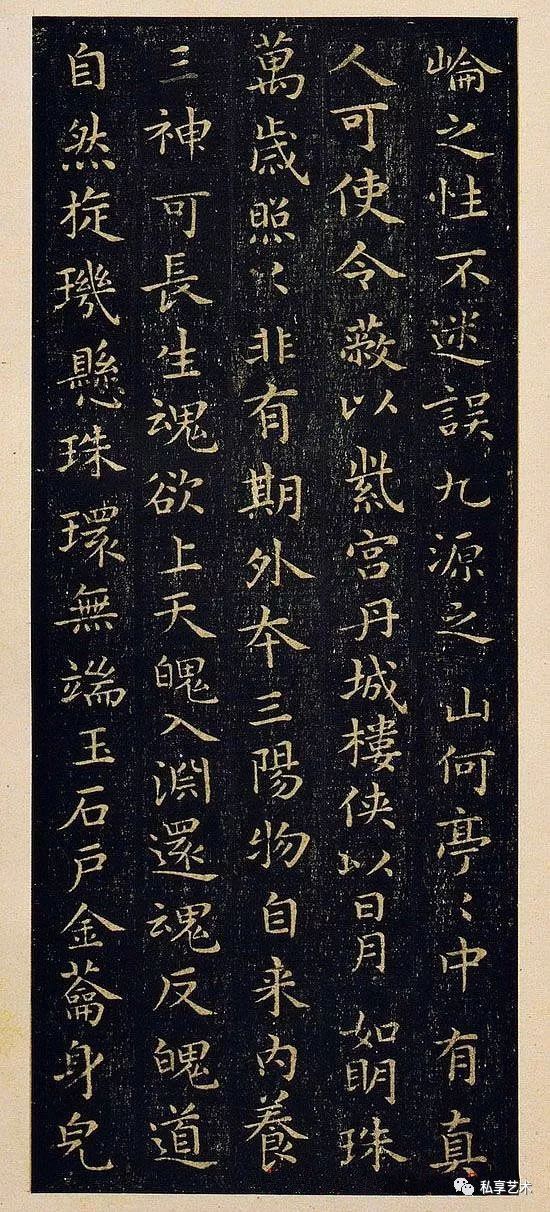 崘之性不迷誤九源之山何亭〻中有真
人可使令蔽以紫宫丹城樓侠以日月如明珠
萬歳照〻非有期外夲三陽物自来内養
三神可長生魂欲上天魄入淵還魂反魄道
自然㨁璣懸珠環無端玉石戶金蘥身皃
私享艺术